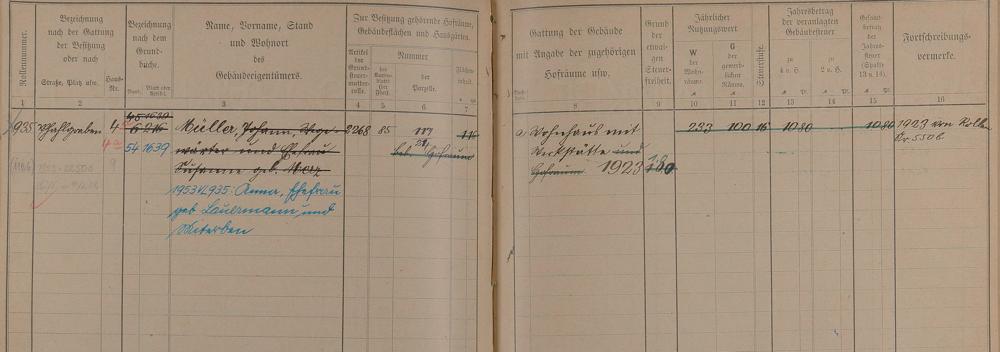 Rollennummer.
Bezeichnung
nach der Gattung
der Besitzung
oder nach
Straße, Platz usw.
Haus-
Nr.
Bezeichnung
nach dem
Grund-
buche.
Band.
Blatt oder
Artikel.
Name, Vorname, Stand
und Wohnort
des
Gebäudeeigentümers.
Zur Besitzung gehörende Hofräume,
Gebäudeflächen und Hausgärten.
Artikel
der
Grund-
steuer-
mutter-
rolle.
Nummer
der
Parzelle.
Flächen-
inhalt.
1
2
3
4
5
6
7
1935
Pfahlgraben
4
4a
45 1639
6 216
54 1639
Müller, Johann, Wege-
wärter und Ehefrau
Susanne geb. Merz
1953 1/1.935: Anna, Ehefrau
geb. Lauermann, und
Miterben
2268
85
Gattung der Gebäude
mit Angabe der zugehörigen
Hofräume usw.
Grund
der
etwai-
gen
Steuer-
freiheit.
Jährlicher
Nutzungswert
W
der
Wohn-
räume.
G
der
gewerb-
lichen
Räume.
Steuerstufe.
Jahresbetrag
der veranlagten
Gebäudesteuer
zu
4 v. H.
zu
2 v. H.
Gesamt-
betrag
der
Jahres-
steuer
(Spalte
13 u. 14).
Fortschreibungs-
vermerke.
8
9
10
11
12
13
14
15
16
a
Wohnhaus mit
Werkstätte und
Hofraum
1923
233
100
16
10 80
10 80
1923 von Rolle
Nr. 550b